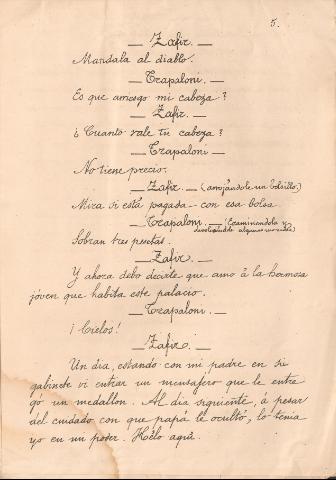 5.
— Zafir. —
Mandala al diablo.
— Trapaloni. —
Es que arriesgo mi cabeza?
— Zafir. —
¿Cuanto vale tu cabeza?
— Trapaloni —
No tiene precio.
— Zafir. — (arrojandole un bolsillo.)
Mira si está pagada con esa bolsa
— Trapaloni. — (Examinandola y
devolviendole algunas monedas)
Sobran tres pesetas.
— Zafir. —
Y ahora debo decirte que amo á la hermosa
jóven que habita este palacio.
— Trapaloni. —
¡Cielos!
— Zafir. —
Un dia, estando con mi padre en su
gabinete vi entrar un mensajero que le entre
gó un medallon. Al dia siguiente, á pesar
del cuidado con que papá le ocultó, lo tenia
yo en un poder. Hélo aquí.